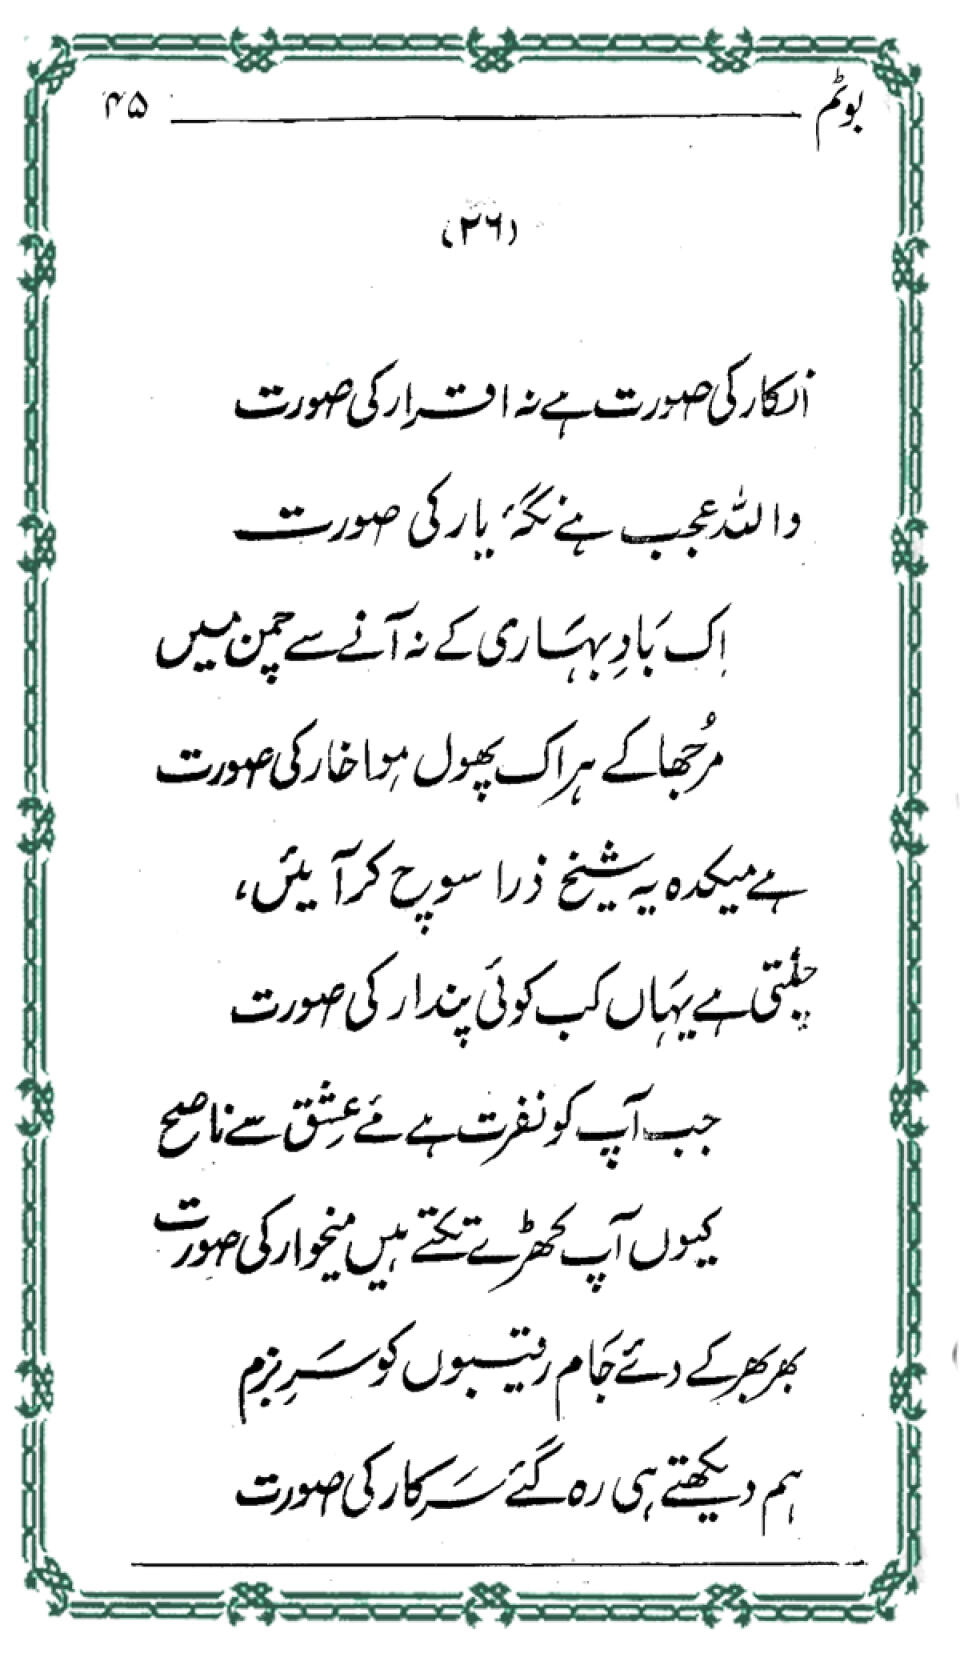 بوٹم ۴۵
(۲۶)
انکار کی صورت ہے نہ اقرار کی صورت
واللہ عجب ہے نگہٴ یار کی صورت
اِک بَادِ بہَاری کے نہ آنے سے چمن میں
مُرجھا کے ہر اک پھول ہوا خار کی صورت
ہے میکدہ یہ شیخ ذرا سوچ کر آیئں،
چلتی ہے یہَاں کب کوئی پندار کی صورت
جب آپ کو نفرت ہے مۓ عِشق سے ناصح
کیوں آپ کھڑے تکتے ہیں میخوار کی صورت
بھر بھر کے دئے جَام رقیبوں کو سَرِ بزم
ہم دیکھتے ہی رہ گئے سَرکار کی صورت